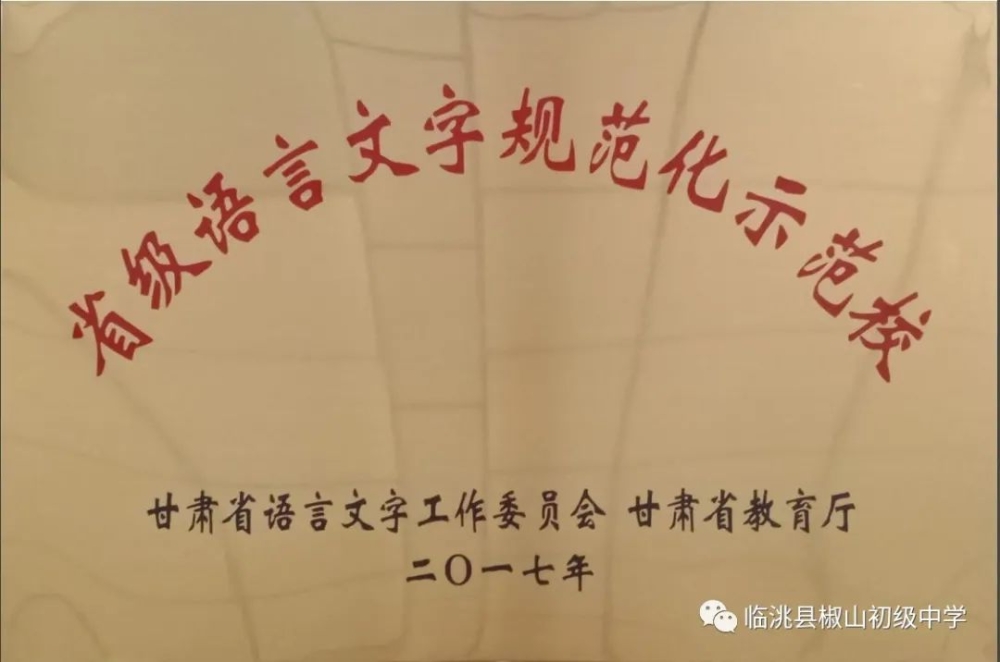 省级语言文字规范化示范校
甘肃省语言文字工作委员会 甘肃省教育厅
二〇一七年
临洮县椒山初级中学